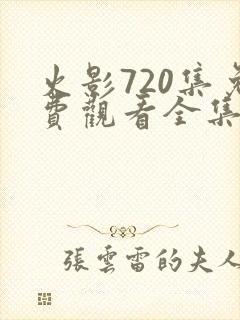 火影720集免
費觀看全集
張雲雷的夫人